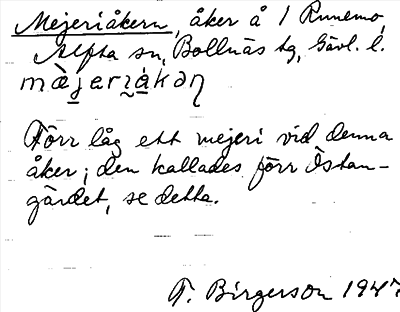 Mejeriåkern, åker å 1 Runemo,
Alfta sn, Bollnäs tg, Gävl. l.
mæ̀jerɪåkəɳ
Förr låg ett mejeri vid denna
åker; den kallades förr Östan-
gärdet, se detta.
T. Birgerson 1947